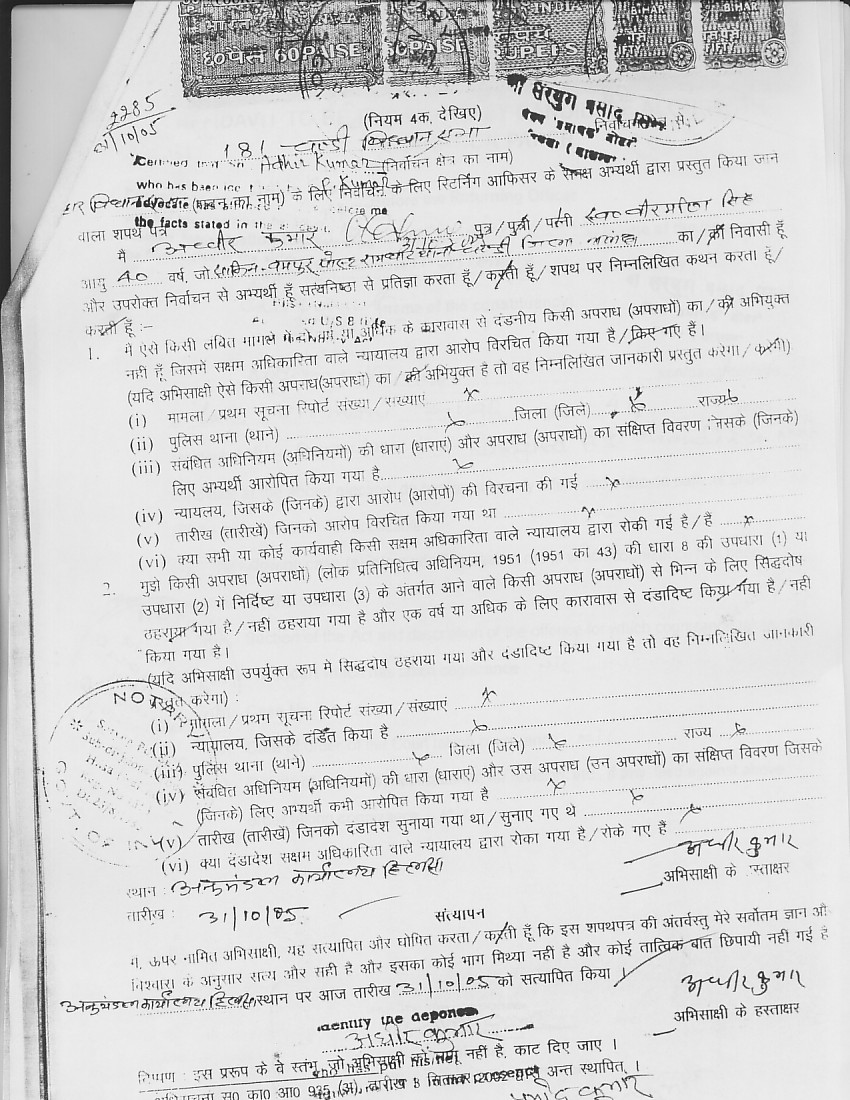 ६० पैसे 60 PAISE PAISE INDIA RUPEES BIHAR BIHAR
2285
31/10/05
(नियम 4क, देखिए)
181 चण्डी विधान सभा निर्वाचन से
Adhir Kumar (निर्वाचन क्षेत्र का नाम)
who has been
(सदन का नाम) के लिए निर्वाचन के लिए रिटर्निंग आफिसर के समक्ष अभ्यर्थी द्वारा प्रस्तुत किया जाने
advocate
the facts stated in the me
वाला शपथ पत्र
मै अधीर कुमार पुत्र / पुत्री / पत्नी सिंह
आयु 40 वर्ष, जो का / की निवासी हूँ
और उपरोक्त निर्वाचन से अभ्यर्थी हूँ सत्यनिष्ठा से प्रतिज्ञा करता हूँ / करती हूँ / शपथ पर निम्नलिखित कथन करता हूँ /
करती हूँ :-
1. मै ऐसे किसी लंबित मागले में के कारावास से दंडनीय किसी अपराध (अपराधों) का / की अभियुक्त
नहीं हूँ जिसमें सक्षम अधिकारिता वाले न्यायालय द्वारा आरोप विरचित किया गया है / किए गए हैं।
(यदि अभिसाक्षी ऐसे किसी अपराध(अपराधों) का / की अभियुक्त है तो वह निम्नलिखित जानकारी प्रस्तुत करेगा / करेगी)
(i) मामला / प्रथम सूचना रिपोर्ट संख्या / संख्याएं x
(ii) पुलिस थाना (थाने) x जिला (जिले) x राज्य x
(iii) संबंधित अधिनियम (अधिनियमों) की धारा (धाराएं) और अपराध (अपराधों) का संक्षिप्त विवरण जिसके (जिनके)
लिए अभ्यर्थी आरोपित किया गया है x
(iv) न्यायलय, जिसके (जिनके) द्वारा आरोप (आरोपों) की विरचना की गई x
(v) तारीख (तारीखें) जिनको आरोप विरचित किया गया था x
(vi) क्या सभी या कोई कार्यवाही किसी सक्षम अधिकारिता वाले न्यायालय द्वारा रोकी गई है / हैं x
2. मुझे किसी अपराध (अपराधों) (लोक प्रतिनिधित्व अधिनियम, 1951 (1951 का 43) की धारा 8 की उपधारा (1) या
उपधारा (2) में निर्दिष्ट या उपधारा (3) के अंतर्गत आने वाले किसी अपराध (अपराधों) से भिन्न के लिए सिद्धदोष
ठहराया गया है / नहीं ठहराया गया है और एक वर्ष या अधिक के लिए कारावास से दंडादिष्ट किया गया है / नहीं
किया गया है।
(यदि अभिसाक्षी उपर्युक्त रूप मे सिद्धदोष ठहराया गया और दंडादिष्ट किया गया है तो वह निम्नलिखित जानकारी
प्रस्तुत करेगा) :
(i) मागला / प्रथम सूचना रिपोर्ट संख्या / संख्याएं x
(ii) न्यायालय, जिसके दंडित किया है x
(iii) पुलिस थाना (थाने) x जिला (जिले) x राज्य x
(iv) संबंधित अधिनियम (अधिनियमों) की धारा (धाराएं) और उस अपराध (उन अपराधों) का संक्षिप्त विवरण जिसके
(जिनके) लिए अभ्यर्थी कभी आरोपित किया गया है x
(v) तारीख (तारीखें) जिनको दंडादेश सुनाया गया था / सुनाए गए थे x
(vi) क्या दंडादेश सक्षम अधिकारिता वाले न्यायालय द्वारा रोका गया है / रोके गए हैं x
अधीर कुमार
अभिसाक्षी के हस्ताक्षर
स्थान : अनुमंडल कार्यालय हिलसा
तारीख : 31/10/05
सत्यापन
ऊपर नामित अभिसाक्षी, यह सत्यापित और घोषित करता / करती हूँ कि इस शपथपत्र की अंतर्वस्तु मेरे सर्वोतम ज्ञान औ
विश्वास के अनुसार सत्य और सही है और इसका कोई भाग मिथ्या नहीं है और कोई तात्विक बात छिपायी नहीं गई है
अनुमंडल कार्यालय हिलसा स्थान पर आज तारीख 31/10/05 को सत्यापित किया।
अधीर कुमार
अभिसाक्षी के हस्ताक्षर
identify the deponent
अधीर कुमार
who has put his/her
टिप्पण : इस प्ररूप के वे स्तंभ, जो अभिसाक्षी को लागू नहीं है, काट दिए जाए।
अधिसूचना स0 का0 आ0 935 (अ), तारीख 3 सितम्बर 2002 द्वारा अन्त स्थापित।